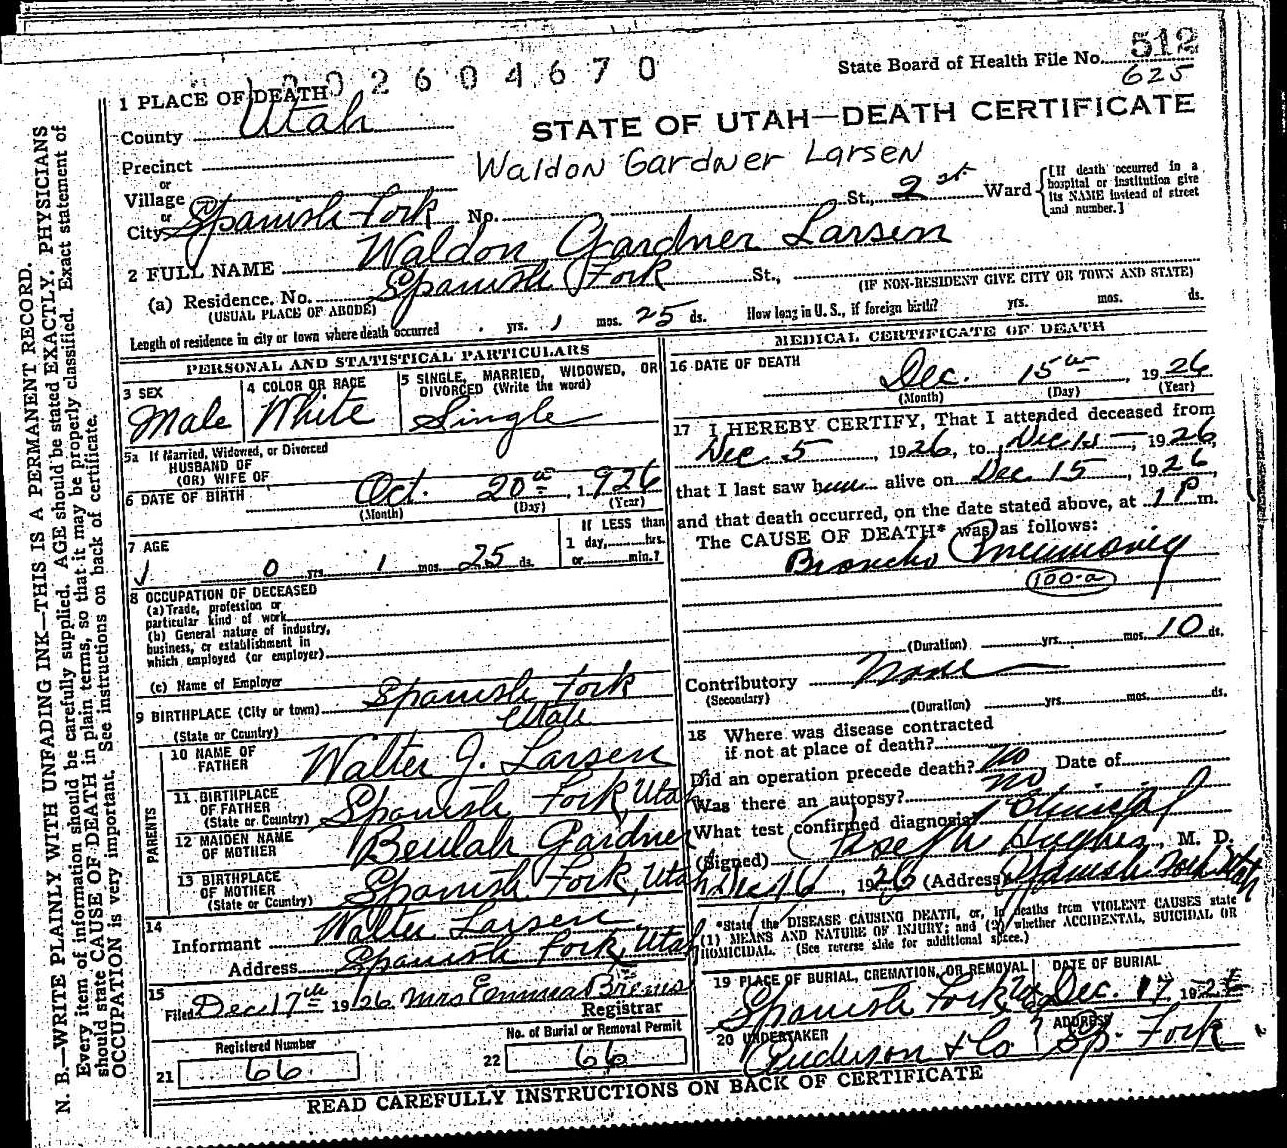 1202604670
State Board of Health File No. 512
625
1 PLACE OF DEATH
County Utah
STATE OF UTAH—DEATH CERTIFICATE
Precinct
Waldon Gardner Larsen
or
Village
or
City Spanish Fork No. St., 2 Ward
[If death occurred in a hospital or institution give its NAME instead of street and number.]
2 FULL NAME Waldon Gardner Larsen
(a) Residence. No. Spanish Fork St.,
(USUAL PLACE OF ABODE) (IF NON-RESIDENT GIVE CITY OR TOWN AND STATE)
Length of residence in city or town where death occurred yrs. 1 mos. 25 ds. How long in U. S., if foreign birth? yrs. mos. ds.
PERSONAL AND STATISTICAL PARTICULARS
3 SEX Male
4 COLOR OR RACE White
5 SINGLE, MARRIED, WIDOWED, OR DIVORCED (Write the word) Single
5a If Married, Widowed, or Divorced
HUSBAND OF
(OR) WIFE OF
6 DATE OF BIRTH Oct. 20th, 1926
(Month) (Day) (Year)
7 AGE
0 yrs. 1 mos. 25 ds.
If LESS than
1 day, hrs.
or min.?
8 OCCUPATION OF DECEASED
(a) Trade, profession or
particular kind of work
(b) General nature of industry,
business, or establishment in
which employed (or employer)
(c) Name of Employer
9 BIRTHPLACE (City or town) Spanish Fork
(State or Country) Utah
PARENTS
10 NAME OF FATHER Walter J. Larsen
11 BIRTHPLACE OF FATHER (State or Country) Spanish Fork, Utah
12 MAIDEN NAME OF MOTHER Beulah Gardner
13 BIRTHPLACE OF MOTHER (State or Country) Spanish Fork, Utah
14
Informant Walter Larsen
Address Spanish Fork, Utah
15
Filed Dec 17th 1926 Mrs Emma
Registrar
Registered Number
21 66
No. of Burial or Removal Permit
22 66
MEDICAL CERTIFICATE OF DEATH
16 DATE OF DEATH
Dec. 15th, 1926
(Month) (Day) (Year)
17 I HEREBY CERTIFY, That I attended deceased from
Dec. 5, 1926, to Dec 15, 1926,
that I last saw him alive on Dec 15, 1926,
and that death occurred, on the date stated above, at 1 P m.
The CAUSE OF DEATH* was as follows:
Broncho Pneumonia
100-a
(Duration) yrs. mos. 10 ds.
Contributory None
(Secondary) (Duration) yrs. mos. ds.
18 Where was disease contracted
if not at place of death?
Did an operation precede death? no Date of
Was there an autopsy? no
What test confirmed diagnosis? Clinical
(Signed) Joseph Hughes, M. D.
Dec 16, 1926 (Address) Spanish Fork Utah
*State the DISEASE CAUSING DEATH, or, in deaths from VIOLENT CAUSES state
(1) MEANS AND NATURE OF INJURY; and (2) whether ACCIDENTAL, SUICIDAL OR
HOMICIDAL. (See reverse side for additional space.)
19 PLACE OF BURIAL, CREMATION, OR REMOVAL Spanish Fork
DATE OF BURIAL Dec. 17 192
20 UNDERTAKER Anderson & Co
ADDRESS Sp. Fork
READ CAREFULLY INSTRUCTIONS ON BACK OF CERTIFICATE
N. B.—WRITE PLAINLY WITH UNFADING INK—THIS IS A PERMANENT RECORD.
Every item of information should be carefully supplied. AGE should be stated EXACTLY. PHYSICIANS
should state CAUSE OF DEATH in plain terms, so that it may be properly classified. Exact statement of
OCCUPATION is very important. See instructions on back of certificate.